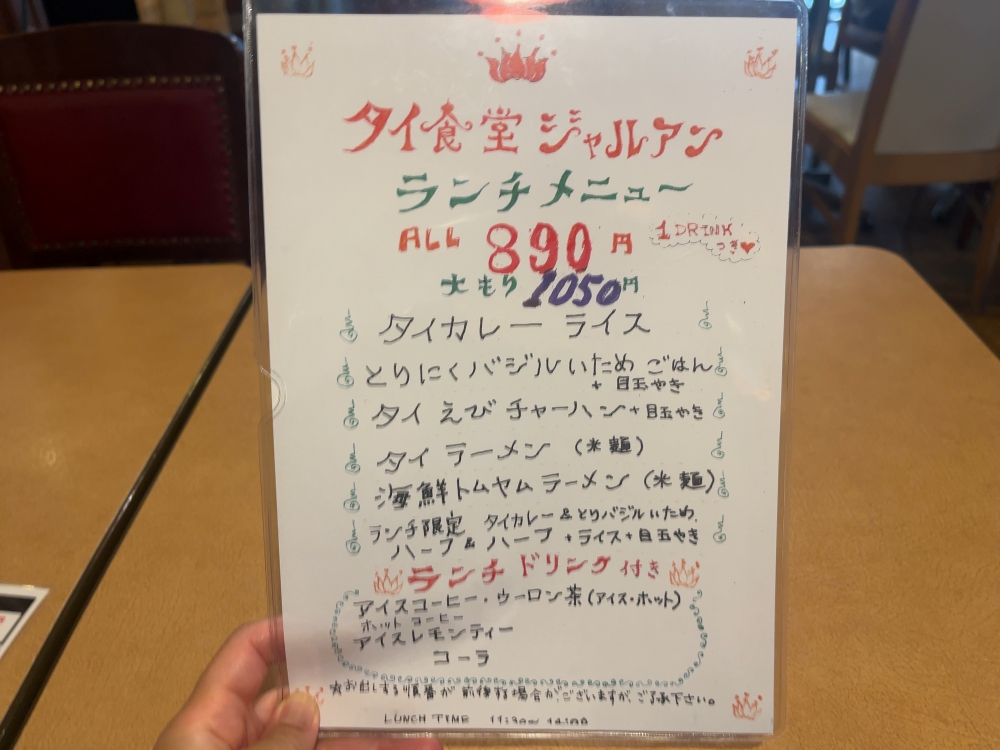 タイ食堂 ジャルアン
ランチメニュー
ALL 890円 1DRINK つき
大もり 1050円
タイカレー ライス
とりにくバジルいため ごはん
+ 目玉やき
タイ えび チャーハン + 目玉やき
タイ ラーメン (米麺)
海鮮トムヤムラーメン (米麺)
ランチ限定 タイカレー & とりバジルいため
ハーフ&ハーフ + ライス + 目玉やき
ランチドリンク 付き
アイスコーヒー・ウーロン茶 (アイス・ホット)
ホットコーヒー
アイスレモンティー
コーラ
お出しする順番が 前後する場合がございますが、ご了承下さい。
LUNCH TIME 11:30~ 14:00